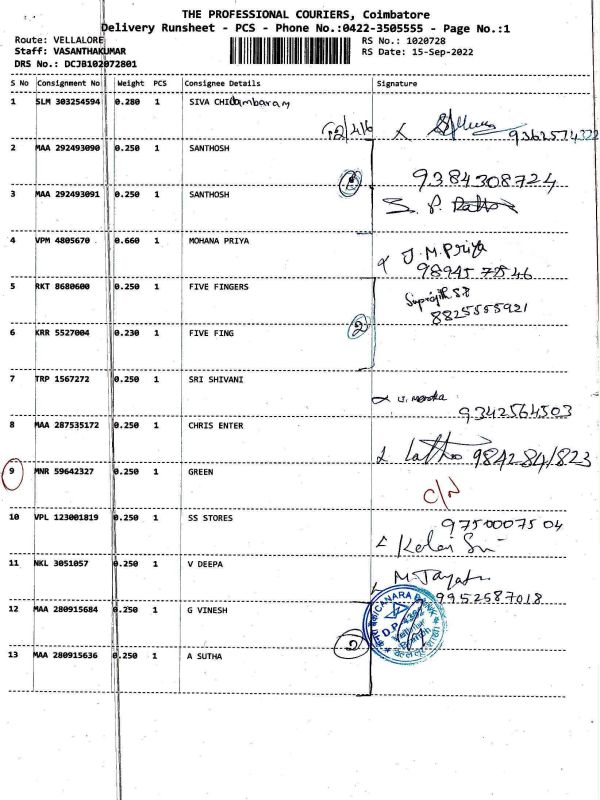 THE PROFESSIONAL COURIERS, Coimbatore
Delivery Runsheet - PCS - Phone No.:0422-3505555 - Page No.:1
Route: VELLALORE
RS No.: 1020728
Staff: VASANTHAKUMAR
RS Date: 15-Sep-2022
DRS No.: DCJB102072801
S No Consignment No Weight PCS Consignee Details Signature
1 SLM 303254594 0.280 1 SIVA CHIdambaram
12/416
2 MAA 292493090 0.250 1 SANTHOSH
2 9384308724
3 MAA 292493091 0.250 1 SANTHOSH
4 VPM 4805670 0.660 1 MOHANA PRIYA J. M. Priya
98945 77546
5 RKT 8680600 0.250 1 FIVE FINGERS
8825555921
6 KRR 5527004 0.230 1 FIVE FING 2
7 TRP 1567272 0.250 1 SRI SHIVANI
9342564503
8 MAA 287535172 0.250 1 CHRIS ENTER
Latha 9842841823
9 MNR 59642327 0.250 1 GREEN
C/N
10 VPL 123001819 0.250 1 SS STORES 9750007504
11 NKL 3051057 0.250 1 V DEEPA
9952587018
CANARA BANK
12 MAA 280915684 0.250 1 G VINESH
D.P. 4392
2
13 MAA 280915636 0.250 1 A SUTHA